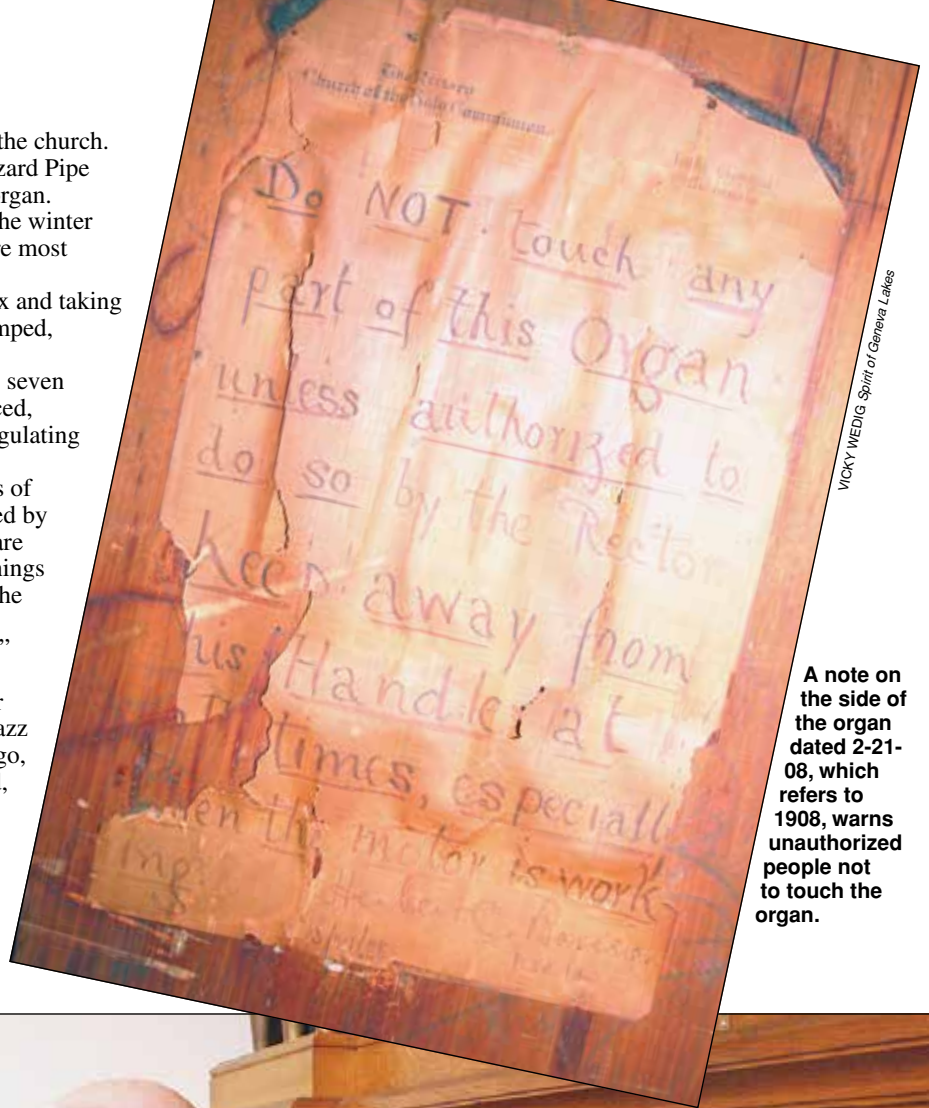 the church.
zard Pipe
rgan.
he winter
re most
x and taking
mped,
seven
ced,
gulating
s of
ed by
are
nings
he
”
r
azz
go,
l,
The Rectory
Church of the Holy Communion
Do NOT touch any
part of this Organ
unless authorized to
do so by the Rector
Keep away from
his Handle at
times, especiall
en the motor is work-
ing.
VICKY WEDIG Spirit of Geneva Lakes
A note on
the side of
the organ
dated 2-21-
08, which
refers to
1908, warns
unauthorized
people not
to touch the
organ.